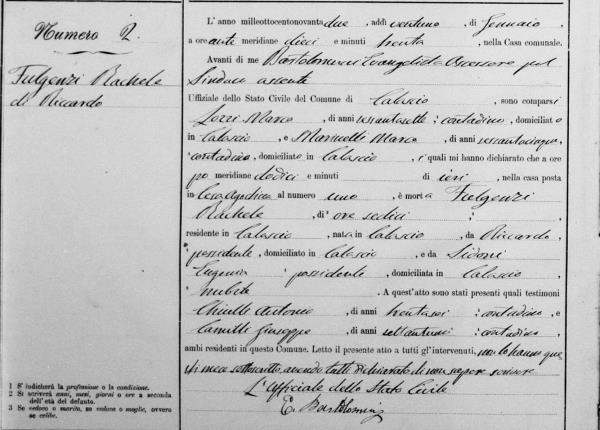 Numero 2.
Fulgenzi Rachele
di Riccardo
L'anno milleottocentonovantadue, addì ventuno, di Gennaio,
a ore ante meridiane dieci e minuti trenta, nella Casa comunale.
Avanti di me Bartolomucci Evangelista Assessore pel
Sindaco assente
Uffiziale dello Stato Civile del Comune di Calascio, sono comparsi
Marco, di anni sessantasette contadino, domiciliato
in Calascio, e Marinelli Marco, di anni sessantacinque,
contadino, domiciliato in Calascio, i quali mi hanno dichiarato che a ore
po meridiane dodici e minuti di ieri, nella casa posta
in al numero uno, è morta Fulgenzi
Rachele di ore sedici
residente in Calascio, nata in Calascio, da Riccardo,
possidente, domiciliato in Calascio, e da Sidoni
Eugenia possidente, domiciliata in Calascio,
nubile. A quest'atto sono stati presenti quali testimoni
Antonio, di anni trentasei contadino, e
Camilli Giuseppe, di anni contadino,
ambi residenti in questo Comune. Letto il presente atto a tutti gl'intervenuti, non lo hanno que
sti meco sottoscritto, avendo tutti dichiarato di non sapere scrivere
L'Uffiziale dello Stato Civile
E. Bartolomucci
1 S' indicherà la professione o la condizione.
2 Si scriverà anni, mesi, giorni o ore a seconda
dell'età del defunto.
3 Se vedovo o marito, se vedova o moglie, ovvero
se celibe.